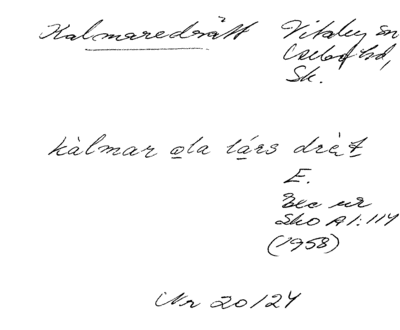 Kalmaredrätt Vitaby sn
Sk.
kàlmar ola lárs drèt
E.
Bec ur
Sko A1:114
(1958)
Nr 20/24